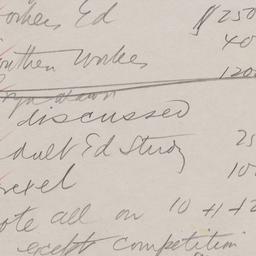 orkers Ed $250
outhern Workers 40
120
discussed
dult Ed Study 25
rexel 100
ote all on 10 +1+2
except competition